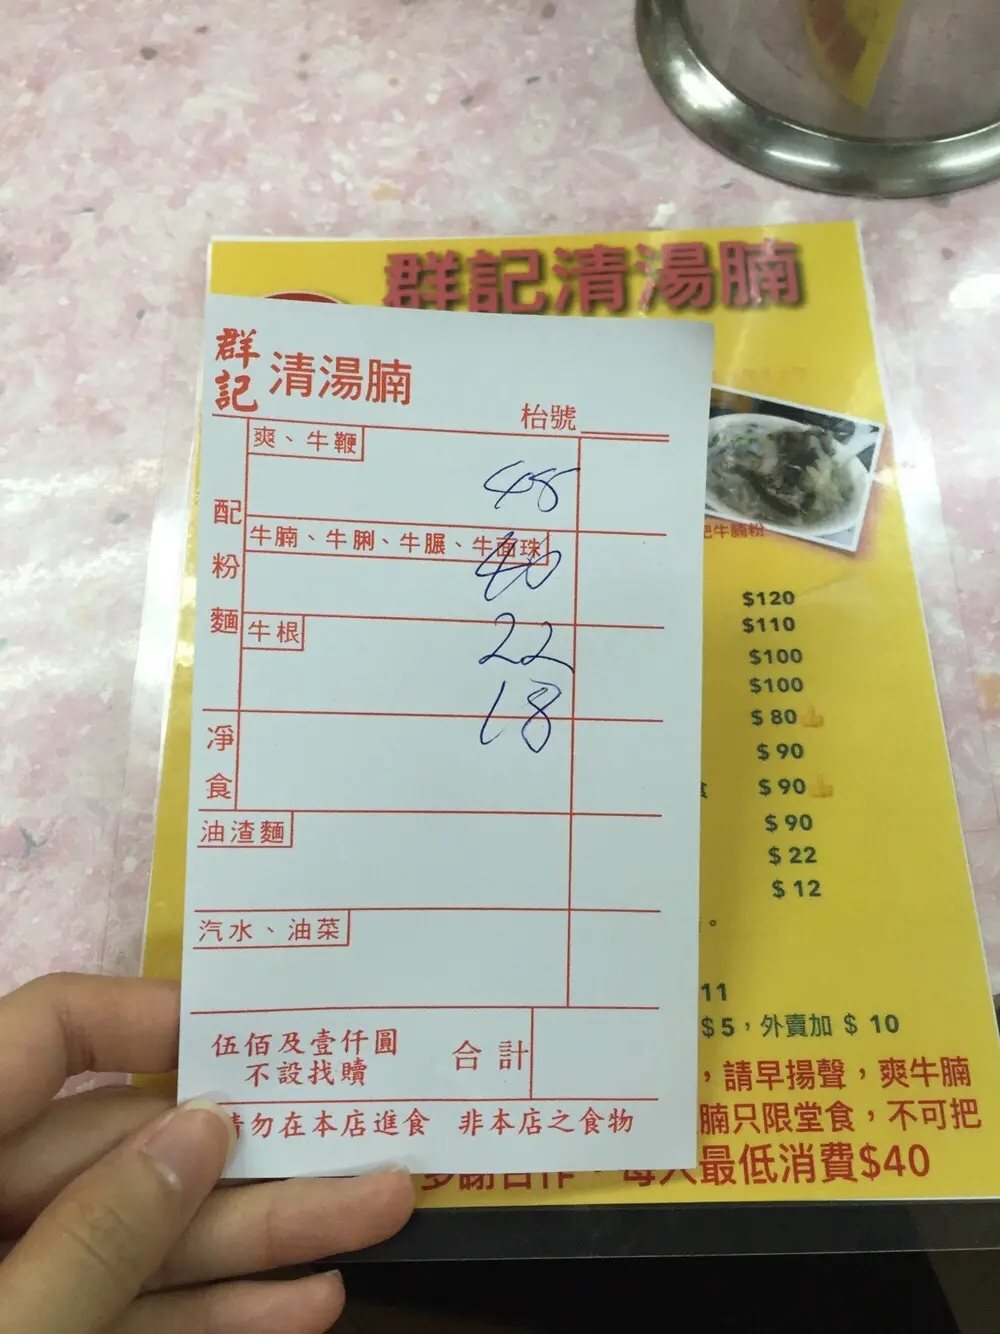 群記清湯腩
群記 清湯腩
枱號
配粉麵
爽、牛鞭
48
牛腩、牛脷、牛𦟌、牛面珠
40
牛根
22
18
淨食
油渣麵
汽水、油菜
伍佰及壹仟圓
不設找贖
合計
請勿在本店進食 非本店之食物
牛腩粉
$120
$110
$100
$100
$80
$90
$90
$90
$22
$12
。
11
$5，外賣加 $10
，請早揚聲，爽牛腩
腩只限堂食，不可把
多謝合作 每人最低消費$40